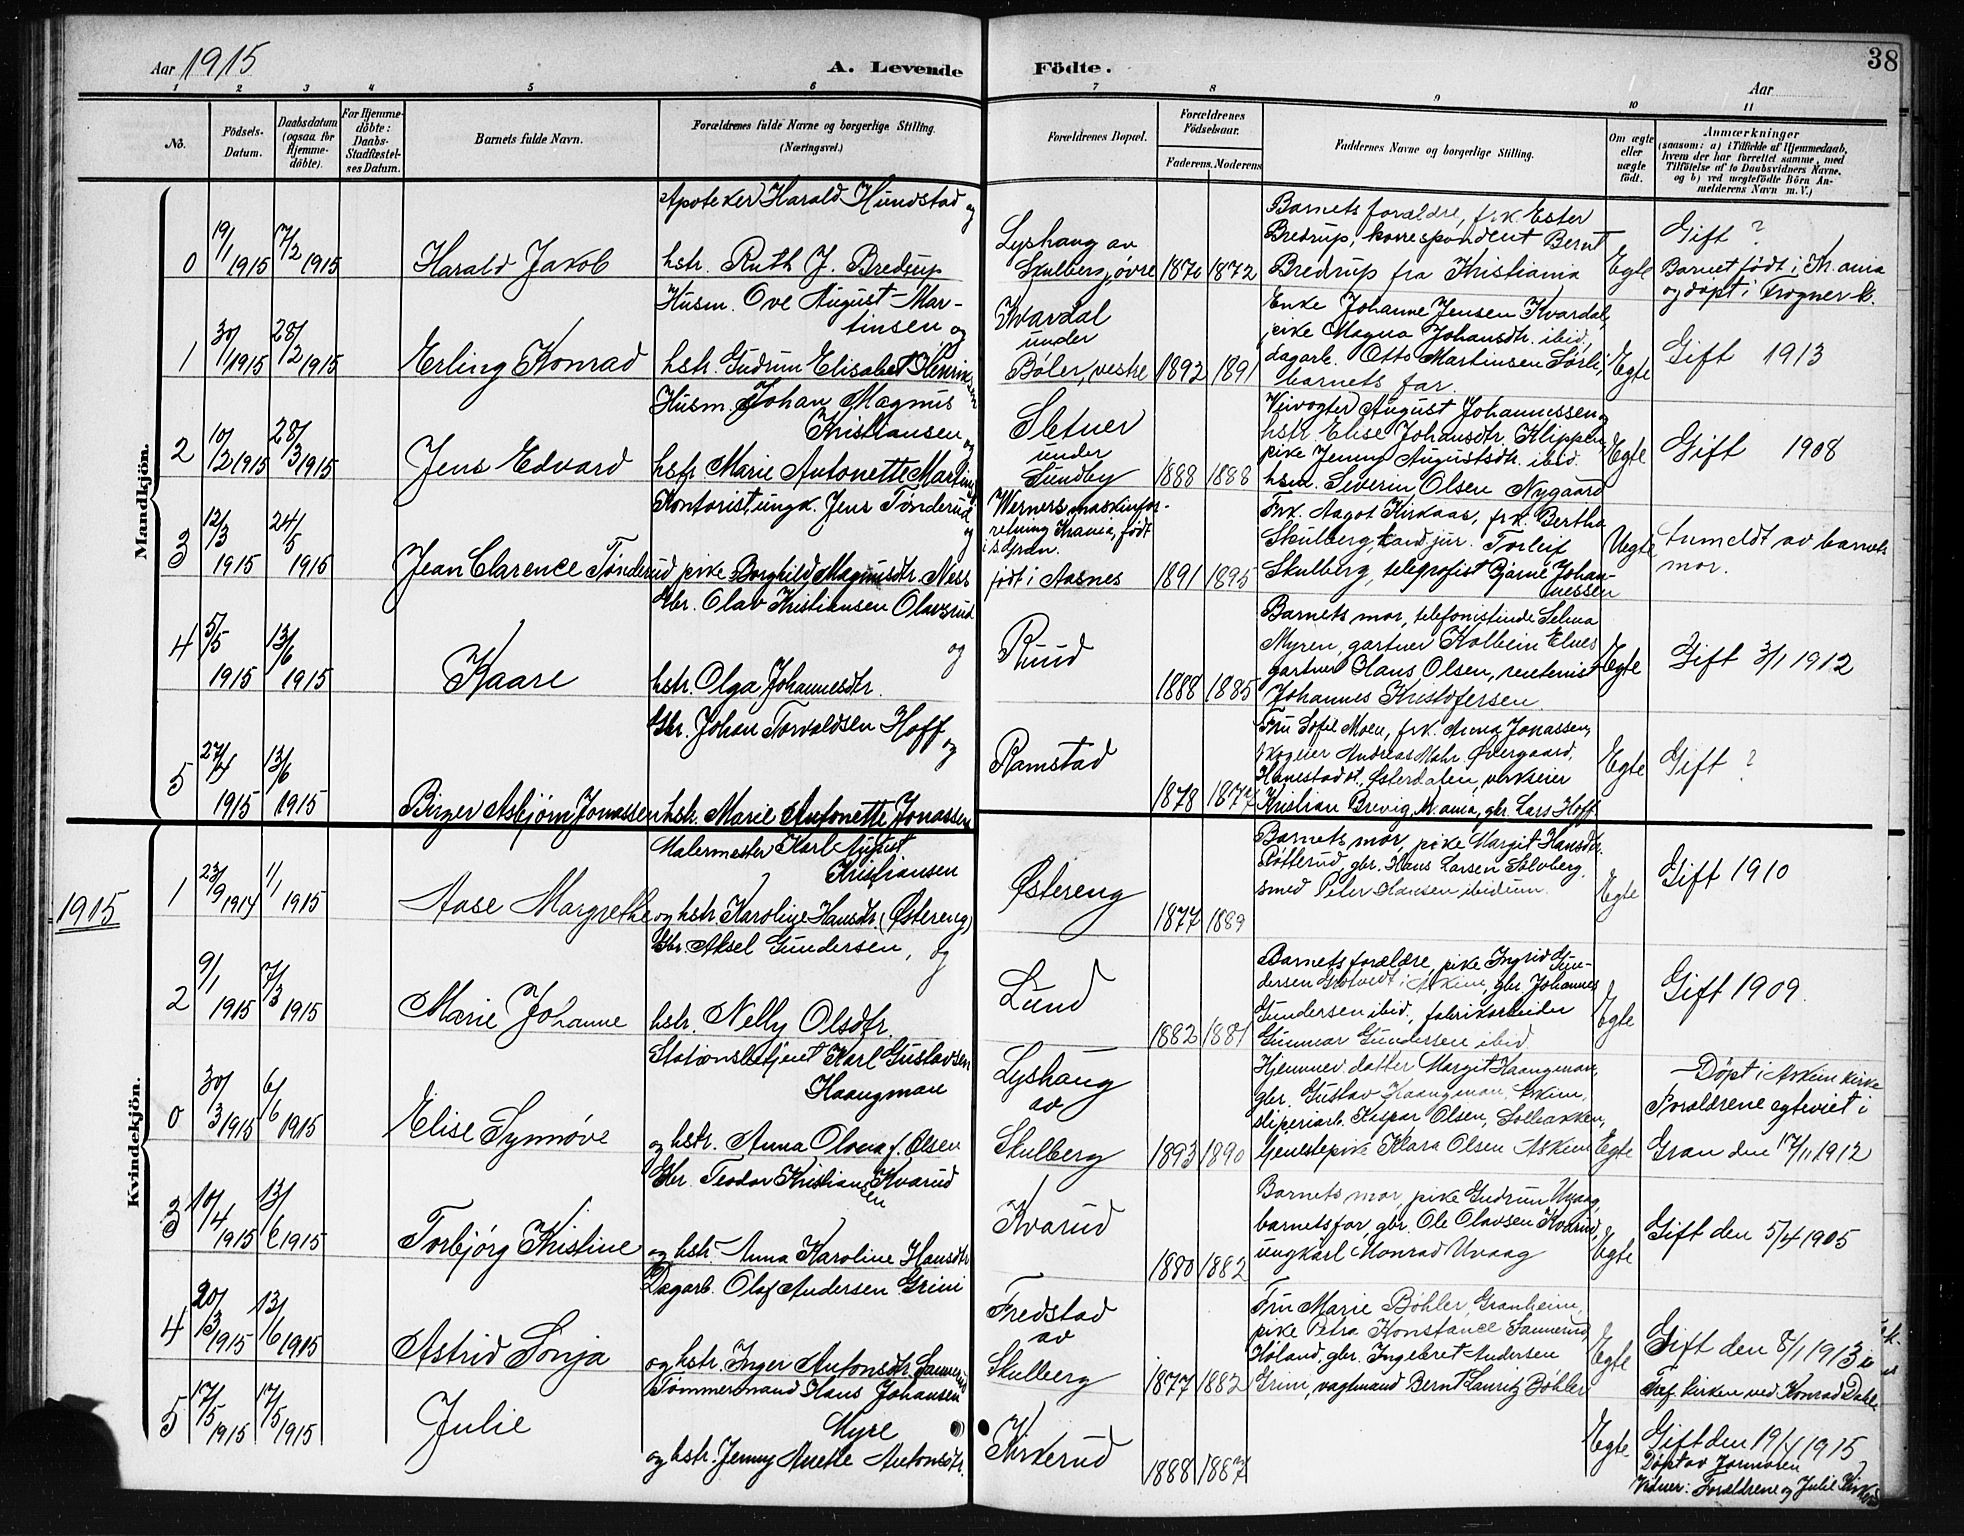 Aar 1915
A. Levende
Födte.
Aar
38
1 2 3 4 5 6 7 8 9 10 11
No.
Födsels-
Datum.
Daabsdatum
(ogsaa for
Hjemme-
döbte).
For Hjemme-
döbte:
Daabs-
Stadfæstel-
ses Datum.
Barnets fulde Navn.
Forældrenes fulde Navne og borgerlige Stilling.
(Næringsvei.)
Forældrenes Bopæl.
Forældrenes
Födselsaar.
Faderens. Moderens
Faddernes Navne og borgerlige Stilling.
Om ægte
eller
uægte
födt.
Anmærkninger
(saasom: a) i Tilfælde af Hjemmedaab,
hvem der har forrettet samme, med
Tilföielse af to Daabsvidners Navne.
og b) ved uægtefödte Börn An-
melderens Navn m. V.)
Mandkjöm.
0
19/1 1915
7/2 1915
Harald Jakob
Apoteker Harald Hundstad og
hstr. Ruth J. Bredrup
Lyshaug av
Skulberg, øvre
1870 1872
Barnets forældre, frk. Ester
Bredrup, korrespondent Bernt
Bredrup fra Kristiania
Egte
Gift ?
Barnet født i Kr.ania
og døpt i Frogner k.
1
30/1 1915
28/2 1915
Erling Konrad
Husm. Ove August Mar-
tinsen og
hstr. Gudrun Elisabet Henriksen
Kvardal
under
Bøler, vestre
1892 1891
Enke Johanne Jensen Kvardal,
pike Magna Johansdtr. ibid,
dagarb. Otto Martinsen Sørli,
barnets far.
Egte
Gift 1913
2
10/2 1915
28/3 1915
Jens Edvard
Husm. Johan Magnus
Kristiansen og
hstr. Marie Antonette Martins
Sletner
under
Sundby
1888 1888
Veivogter August Johannessen og
hstr Elise Johansdtr. Klippen,
pike Jenny Augustsdtr. ibid.
hsm. Severin Olsen Nygaard
Egte
Gift 1908
3
12/3 1915
24/5 1915
Jean Clarence Tønderud
Kontorist, ungk. Jens Tønderud
og
pike Borghild Magnusdtr. Ness
Werners maskinfor-
retning Krania, født
i sdpræn.
født i Aasnes
1891 1895
Frk. Aagot Kirkaas, frk. Bertha
Skulberg, kand. jur. Torleif
Skulberg, telegrafist Bjarne Johan-
nessen
Uegte
Anmeldt av barnets
mor.
4
5/5 1915
13/6 1915
Kaare
Gbr. Olav Kristiansen Olavsrud
og
hstr. Olga Johannesdtr.
Ruud
1888 1885
Barnets mor, telefonistinde Selma
Myren, gartner Kolbein Elnes
gartner Hans Olsen, rentenist
Johannes Kristofersen
Egte
Gift 3/1 1912
5
27/4 1915
13/6 1915
Birger Asbjørn Jonassen
Gbr. Johan Torvaldsen Hoff
og
hstr. Marie Antonette Jonassen
Ramstad
1878 1877
Fru Sofie Moen, frk. Anna Jonassen,
Andreas Mohr Øvergaard,
Hanestad st. Østerdalen, verkeier
Kristian Brevig, Kr.ania, gbr. Lars Hoff
Egte
Gift ?
1915
Kvindekjön.
1
23/9 1914
1/1 1915
Aase Margrethe
Malermester Karl August
Kristiansen
og hstr. Karoline Hansdtr. (Østereng)
Østereng
1877 1889
Barnets mor, pike Margit Hansdtr.
Røtterud, gbr. Hans Larsen Solvberg
smed Peter Hansen ibidum.
Egte
Gift 1910
2
9/1 1915
7/3 1915
Marie Johanne
Gbr Aksel Gundersen, og
hstr. Nelly Olsdtr.
Lund
1882 1881
Barnets forældre, pike Ingrid Gun-
dersen Grøtvedt i Askim, gbr. Johannes
Gundersen ibid., fabrikarbeider
Gunnar Gundersen ibid.
Egte
Gift 1909.
0
30/3 1915
6/6 1915
Elise Synnøve
Stationsbetjent Karl Gustavsen
Haangman
og hstr. Anna Olava f. Olsen
Lyshaug
av
Skulberg
1893 1890
Hjemmev. datter Margit Haangman,
gbr. Gustav Haangman, Askim,
sliperiarb. Kaspar Olsen, Solbakken,
tjenestepik Klara Olsen Askim
Egte
Døpt i Askim kirke
Forældrene egteviet i
Gran den 17/11 1912
3
10/4 1915
13/6 1915
Torbjørg Kristine
Gbr. Teodor Kristiansen Kvarud
og hstr. Anna Karoline Hansdtr
Kvarud
1880 1882
Barnets mor, pike Gudrun Uvaag,
barnets far, gbr. Ole Olavsen Kvarud,
ungkarl Konrad Uvaag
Egte
Gift den 5/4 1905
4
20/3 1915
13/6 1915
Astrid Sonja
Dagarb. Olaf Andersen Grini
og hstr. Inger Antonsdtr. Sannerud
Fredstad
av
Skulberg
1877 1882
Fru Marie Bøhler, Granheim,
pike Petra Konstance Sannerud,
Høland, gbr. Ingebret Andersen
Grini, vagtmand Bernt Lauritz Bøhler
Egte
Gift den 8/1 1913
kirken ved Konrad Dahl
5
17/5 1915
17/5 1915
Julie
Tømmermand Hans Johansen
Myre
og hstr. Jenny Anette Antonsdtr.
Kirkerud
1888 1887
Egte
Gift den 19/4 1915
Døpt av Jormoren
Vidner: Forældrene og Julie Kirkerud